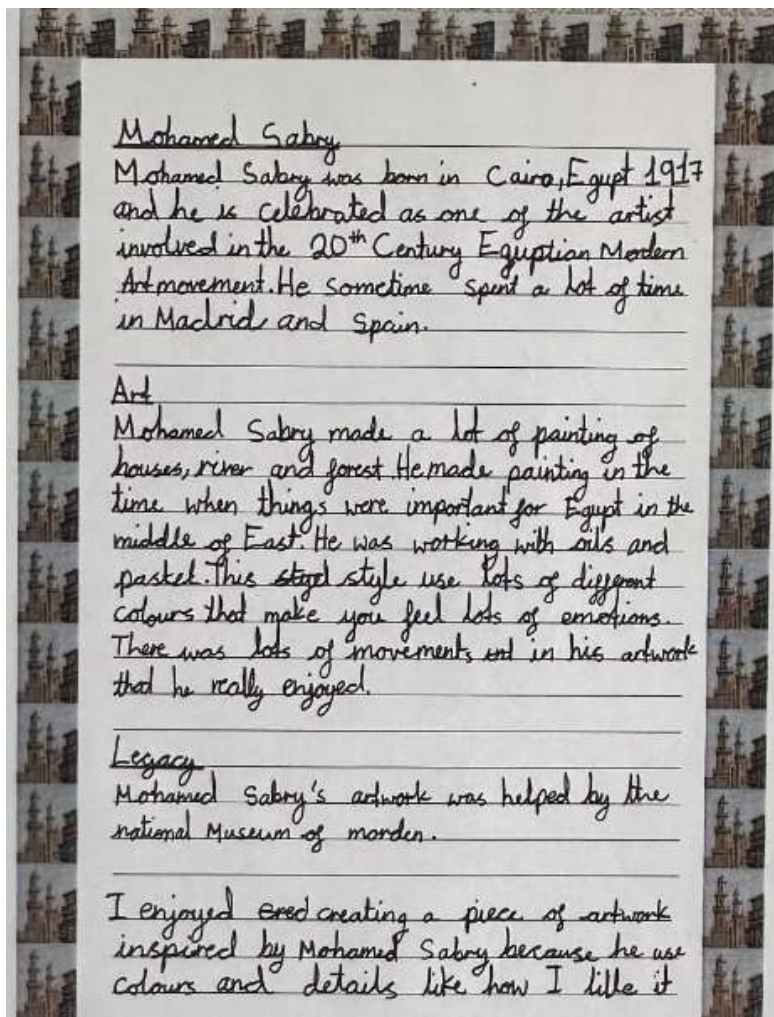 Mohamed Sabry
Mohamed Sabry was born in Cairo, Egupt 1917
and he is celebrated as one of the artist
involved in the 20th Century Eguptian Mordern
Art movement. He sometime spent a lot of time
in Madrid and Spain.
Art
Mohamed Sabry made a lot of painting of
houses, river and forest. He made painting in the
time when things were important for Egupt in the
middle of East. He was working with oils and
pastel. This style use lots of different
colours that make you feel lots of emotions.
There was lots of movements in his artwork
that he really enjoyed.
Legacy
Mohamed Sabry's artwork was helped by the
national Museum of morden.
I enjoyed creating a piece of artwork
inspired by Mohamed Sabry because he use
colours and details like how I lille it